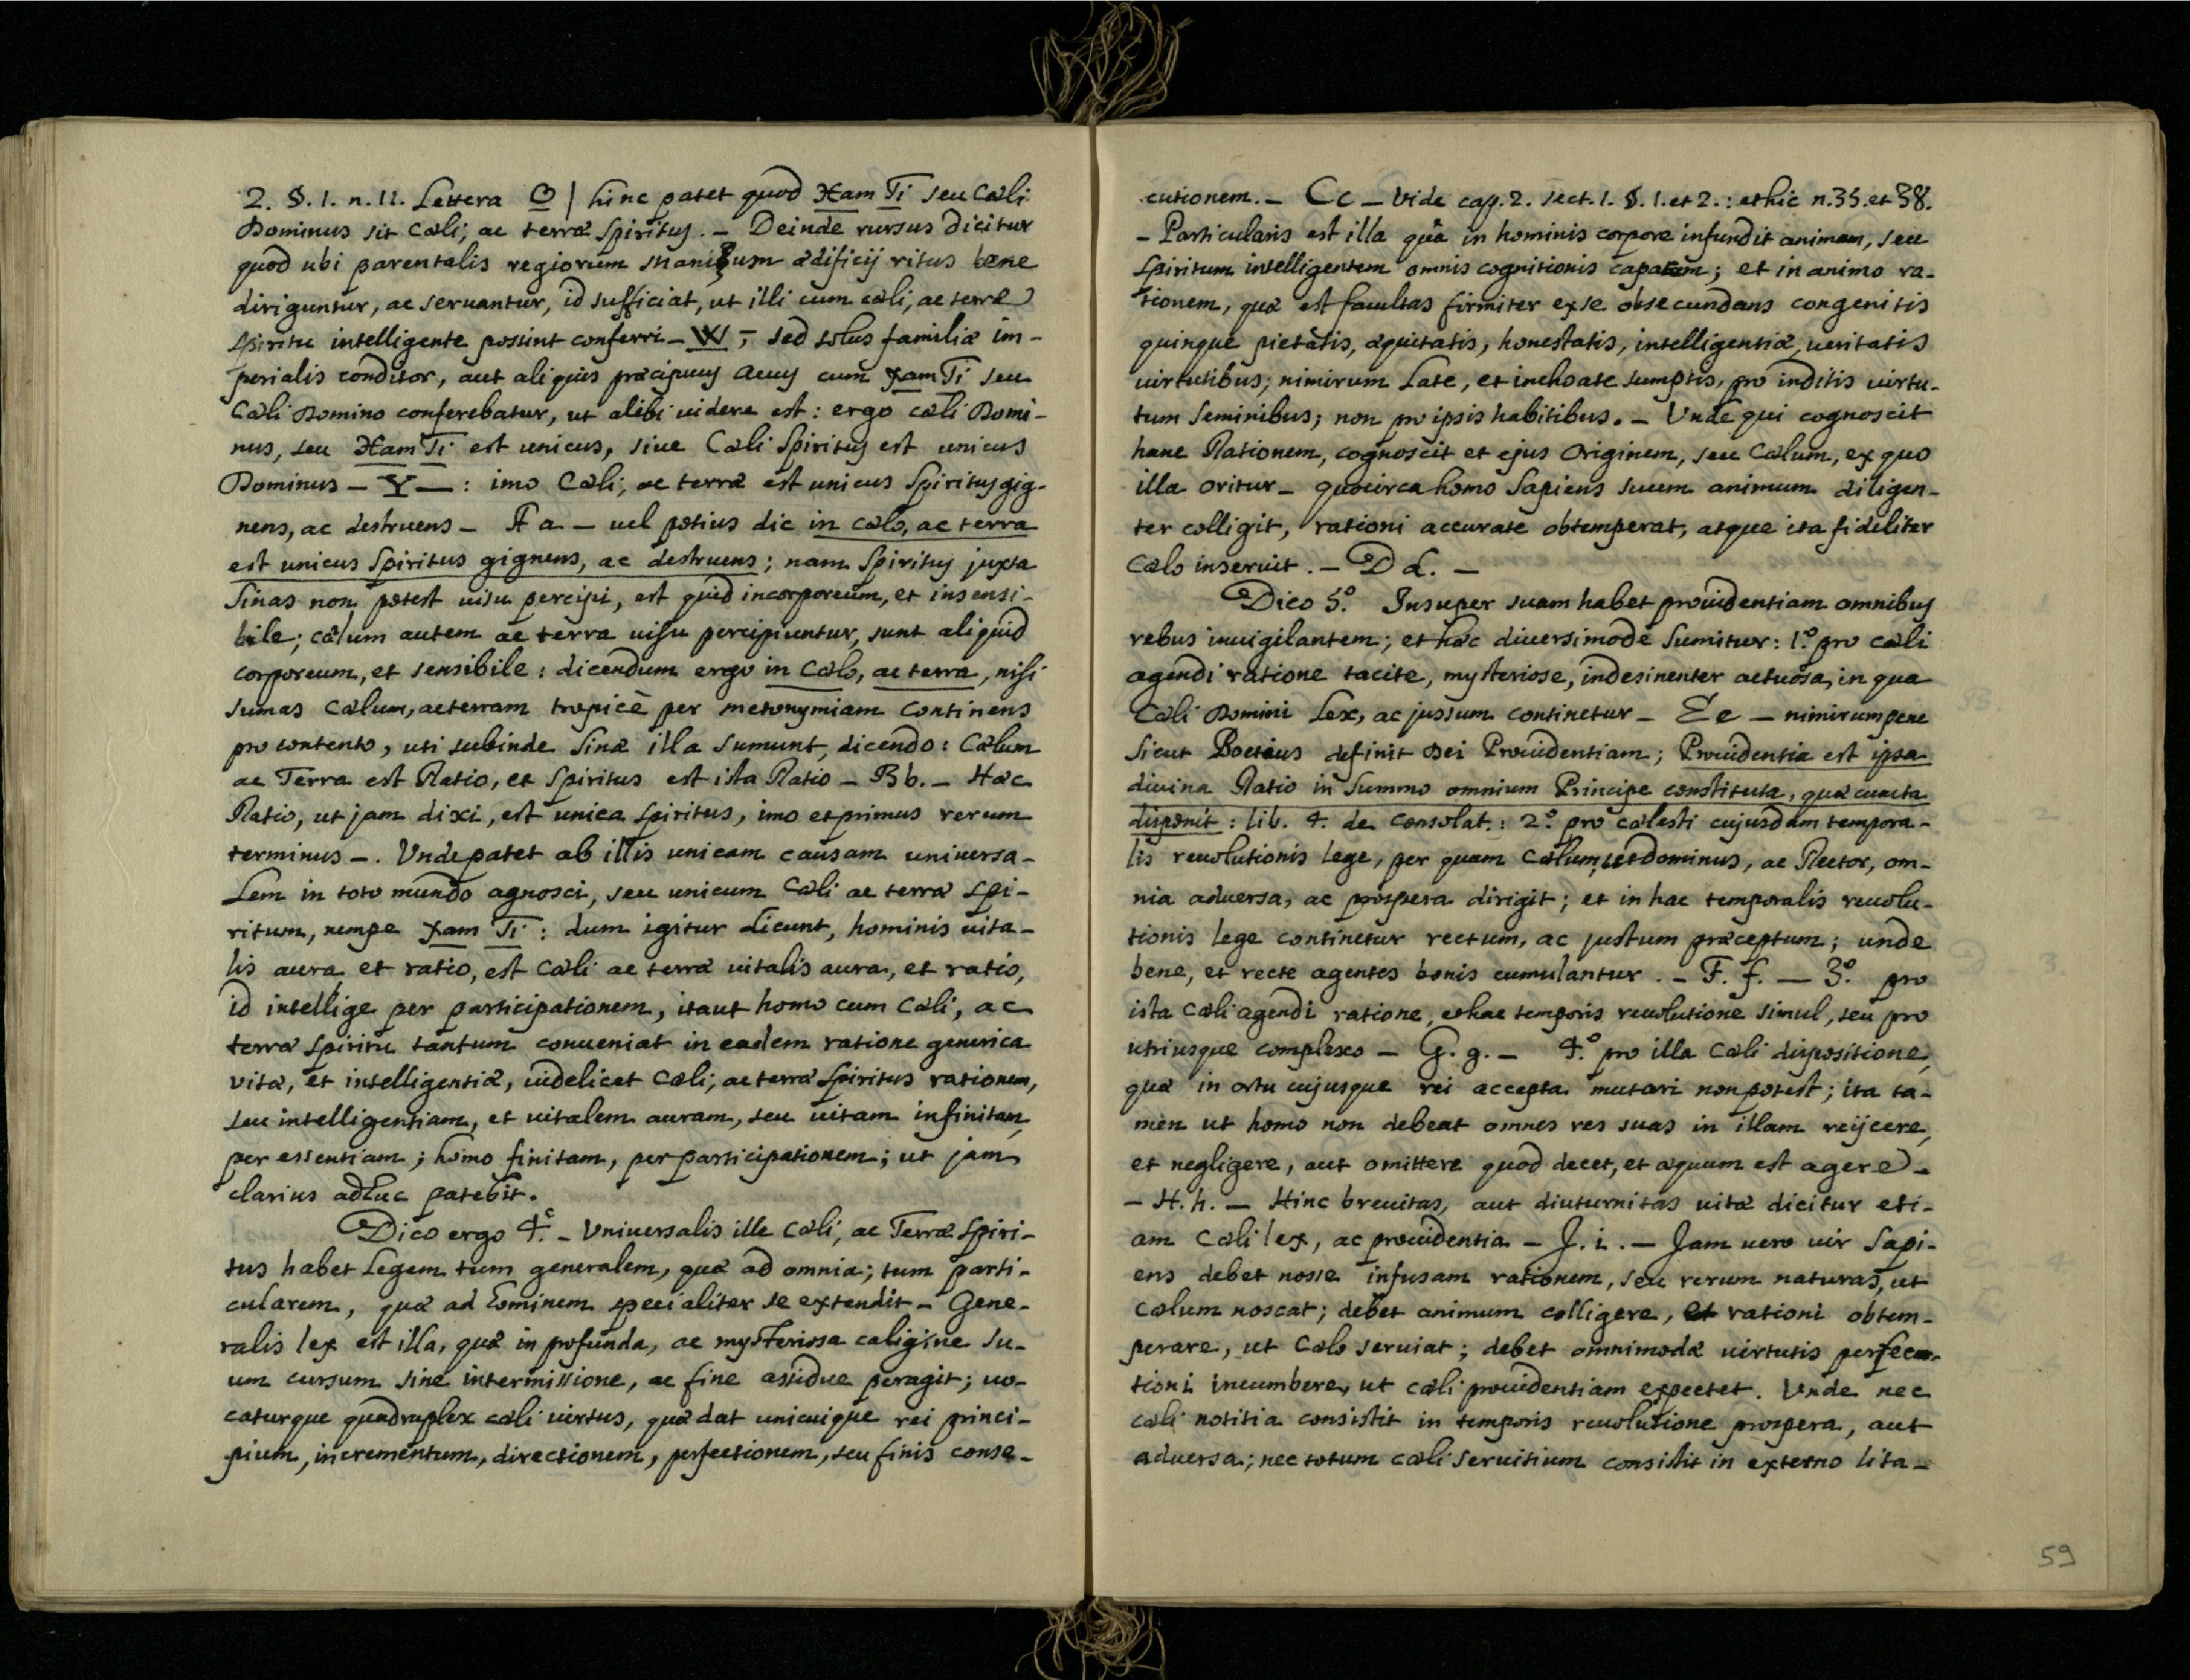 2. §. 1. n. 11. Lettera O | hinc patet quod Xam Ti seu Cæli
Dominus sit Cæli, ac terræ Spiritus. – Deinde rursus dicitur
quod ubi parentalis regiorum Manium ædificij ritus bene
diriguntur, ac servantur, id sufficiat, ut illi cum cæli, ac terræ
spiritu intelligente possint conferri – W –, sed solus familiæ im-
perialis conditor, aut aliquis præcipuus avus cum Xam Ti seu
Cæli Domino conferebatur, ut alibi videre est: ergo cæli Domi-
nus, seu Xam Ti est unicus, sive Cæli Spiritus est unicus
Dominus – Y –: imo Cæli, ac terræ est unicus Spiritus gig-
nens, ac destruens – A a – vel potius dic in cælo, ac terra
est unicus Spiritus gignens, ac destruens; nam Spiritus juxta
Sinas non potest visu percipi, est quid incorporeum, et insensi-
bile; cælum autem ac terra visu percipiuntur, sunt aliquid
corporeum, et sensibile: dicendum ergo in Cælo, ac terra, nisi
sumas Cælum, ac terram tropicè per metonymiam Continens
pro contento, uti subinde Sinæ illa sumunt, dicendo: Cælum
ac Terra est Ratio, et Spiritus est ista Ratio – B b. – Hæc
Ratio, ut jam dixi, est unica spiritus, imo et primus rerum
terminus –. Vnde patet ab illis unicam causam universa-
lem in toto mundo agnosci, seu unicum Cæli ac terræ spi-
ritum, nempe Xam Ti: dum igitur dicunt, hominis vita-
lis aura et ratio, est Cæli ac terræ vitalis aura, et ratio,
id intellige per participationem, ita ut homo cum Cæli, ac
terræ Spiritu tantum conveniat in eadem ratione generica
vitæ, et intelligentiæ, videlicet Cæli, ac terræ Spiritus rationem,
seu intelligentiam, et vitalem auram, seu vitam infinitam,
per essentiam; homo finitam, per participationem; ut jam
clarius adhuc patebit.
Dico ergo 4.º – Universalis ille Cæli, ac Terræ Spiri-
tus habet Legem tum generalem, quæ ad omnia; tum parti-
cularem, quæ ad hominem specialiter se extendit – Gene-
ralis lex est illa, quæ in profunda, ac mysteriosa caligine su-
um cursum sine intermissione, ac fine assidue peragit; vo-
caturque quadruplex cæli virtus, quæ dat unicuique rei princi-
pium, incrementum, directionem, perfectionem, seu finis conse-
cutionem. – Cc – Vide cap. 2. sect. 1. §. 1. et 2.: et hic n. 35. et 38.
– Particularis est illa quâ in hominis corpore infundit animam, seu
Spiritum intelligentem omnis cognitionis capacem; et in animo ra-
tionem, quæ est facultas firmiter ex se obsecundans congenitis
quinque pietatis, æquitatis, honestatis, intelligentiæ, veritatis
virtutibus; nimirum Late, et inchoate sumptis, pro inditis virtu-
tum seminibus; non pro ipsis habitibus. – Vnde qui cognoscit
hanc Rationem, cognoscit et ejus Originem, seu Cælum, ex quo
illa oritur – quocirca homo Sapiens suum animum diligen-
ter colligit, rationi accurate obtemperat, atque ita fideliter
Cælo inservit. – D d. –
Dico 5.º Insuper suam habet providentiam omnibus
rebus invigilantem; et hæc diversimode sumitur: 1.º pro cæli
agendi ratione tacite, mysteriose, indesinenter actuosa, in qua
Cæli Domini Lex, ac jussum continetur – E e – nimirum pene
sicut Boetius definit Dei Providentiam; Providentia est ipsa
divina Ratio in Summo omnium Principe constituta, quæ cuncta
disponit: lib. 4. de Consolat.: 2.º pro cælesti cujusdam tempora-
lis revolutionis lege, per quam Cælum, ut Dominus, ac Rector, om-
nia adversa, ac prospera dirigit; et in hac temporalis revolu-
tionis lege continetur rectum, ac justum præceptum; unde
bene, et recte agentes bonis cumulantur. – F. f. – 3.º pro
ista Cæli agendi ratione, et hac temporis revolutione simul, seu pro
utriusque complexo – G. g. – 4.º pro illa Cæli dispositione,
quæ in ortu cujusque rei accepta mutari non potest; ita ta-
men ut homo non debeat omnes res suas in illam reijcere,
et negligere, aut omittere quod decet, et æquum est agere –
– H. h. – Hinc brevitas, aut diuturnitas vitæ dicitur eti-
am Cæli lex, ac providentia – J. i. – Jam vero vir Sapi-
ens debet nosse infusam rationem, seu rerum naturas, ut
Cælum noscat; debet animum colligere, et rationi obtem-
perare, ut Cælo serviat; debet omnimodæ virtutis perfec-
tioni incumbere, ut cæli providentiam expectet. Vnde nec
cæli notitia consistit in temporis revolutione prospera, aut
adversa; nec totum cæli servitium consistit in externo lita-
59